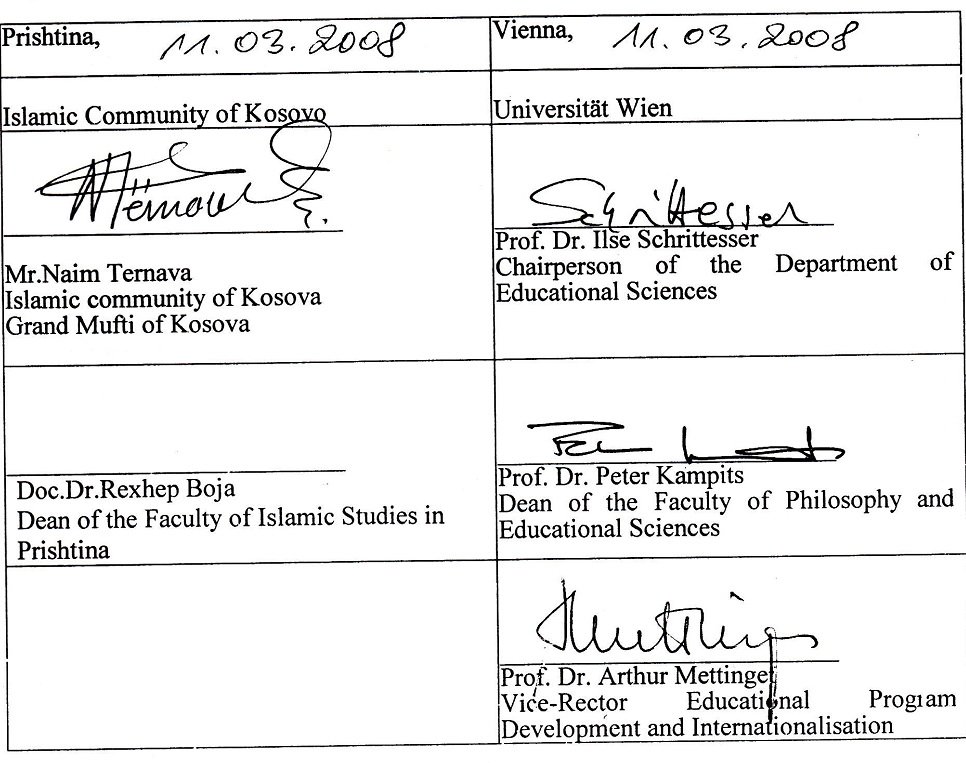 Prishtina, 11.03.2008
Vienna, 11.03.2008
Islamic Community of Kosovo
Universität Wien
Mr.Naim Ternava
Islamic community of Kosova
Grand Mufti of Kosova
Schrittesser
Prof. Dr. Ilse Schrittesser
Chairperson of the Department of
Educational Sciences
Doc.Dr.Rexhep Boja
Dean of the Faculty of Islamic Studies in
Prishtina
Prof. Dr. Peter Kampits
Dean of the Faculty of Philosophy and
Educational Sciences
Prof. Dr. Arthur Mettinger
Vice-Rector Educational Program
Development and Internationalisation